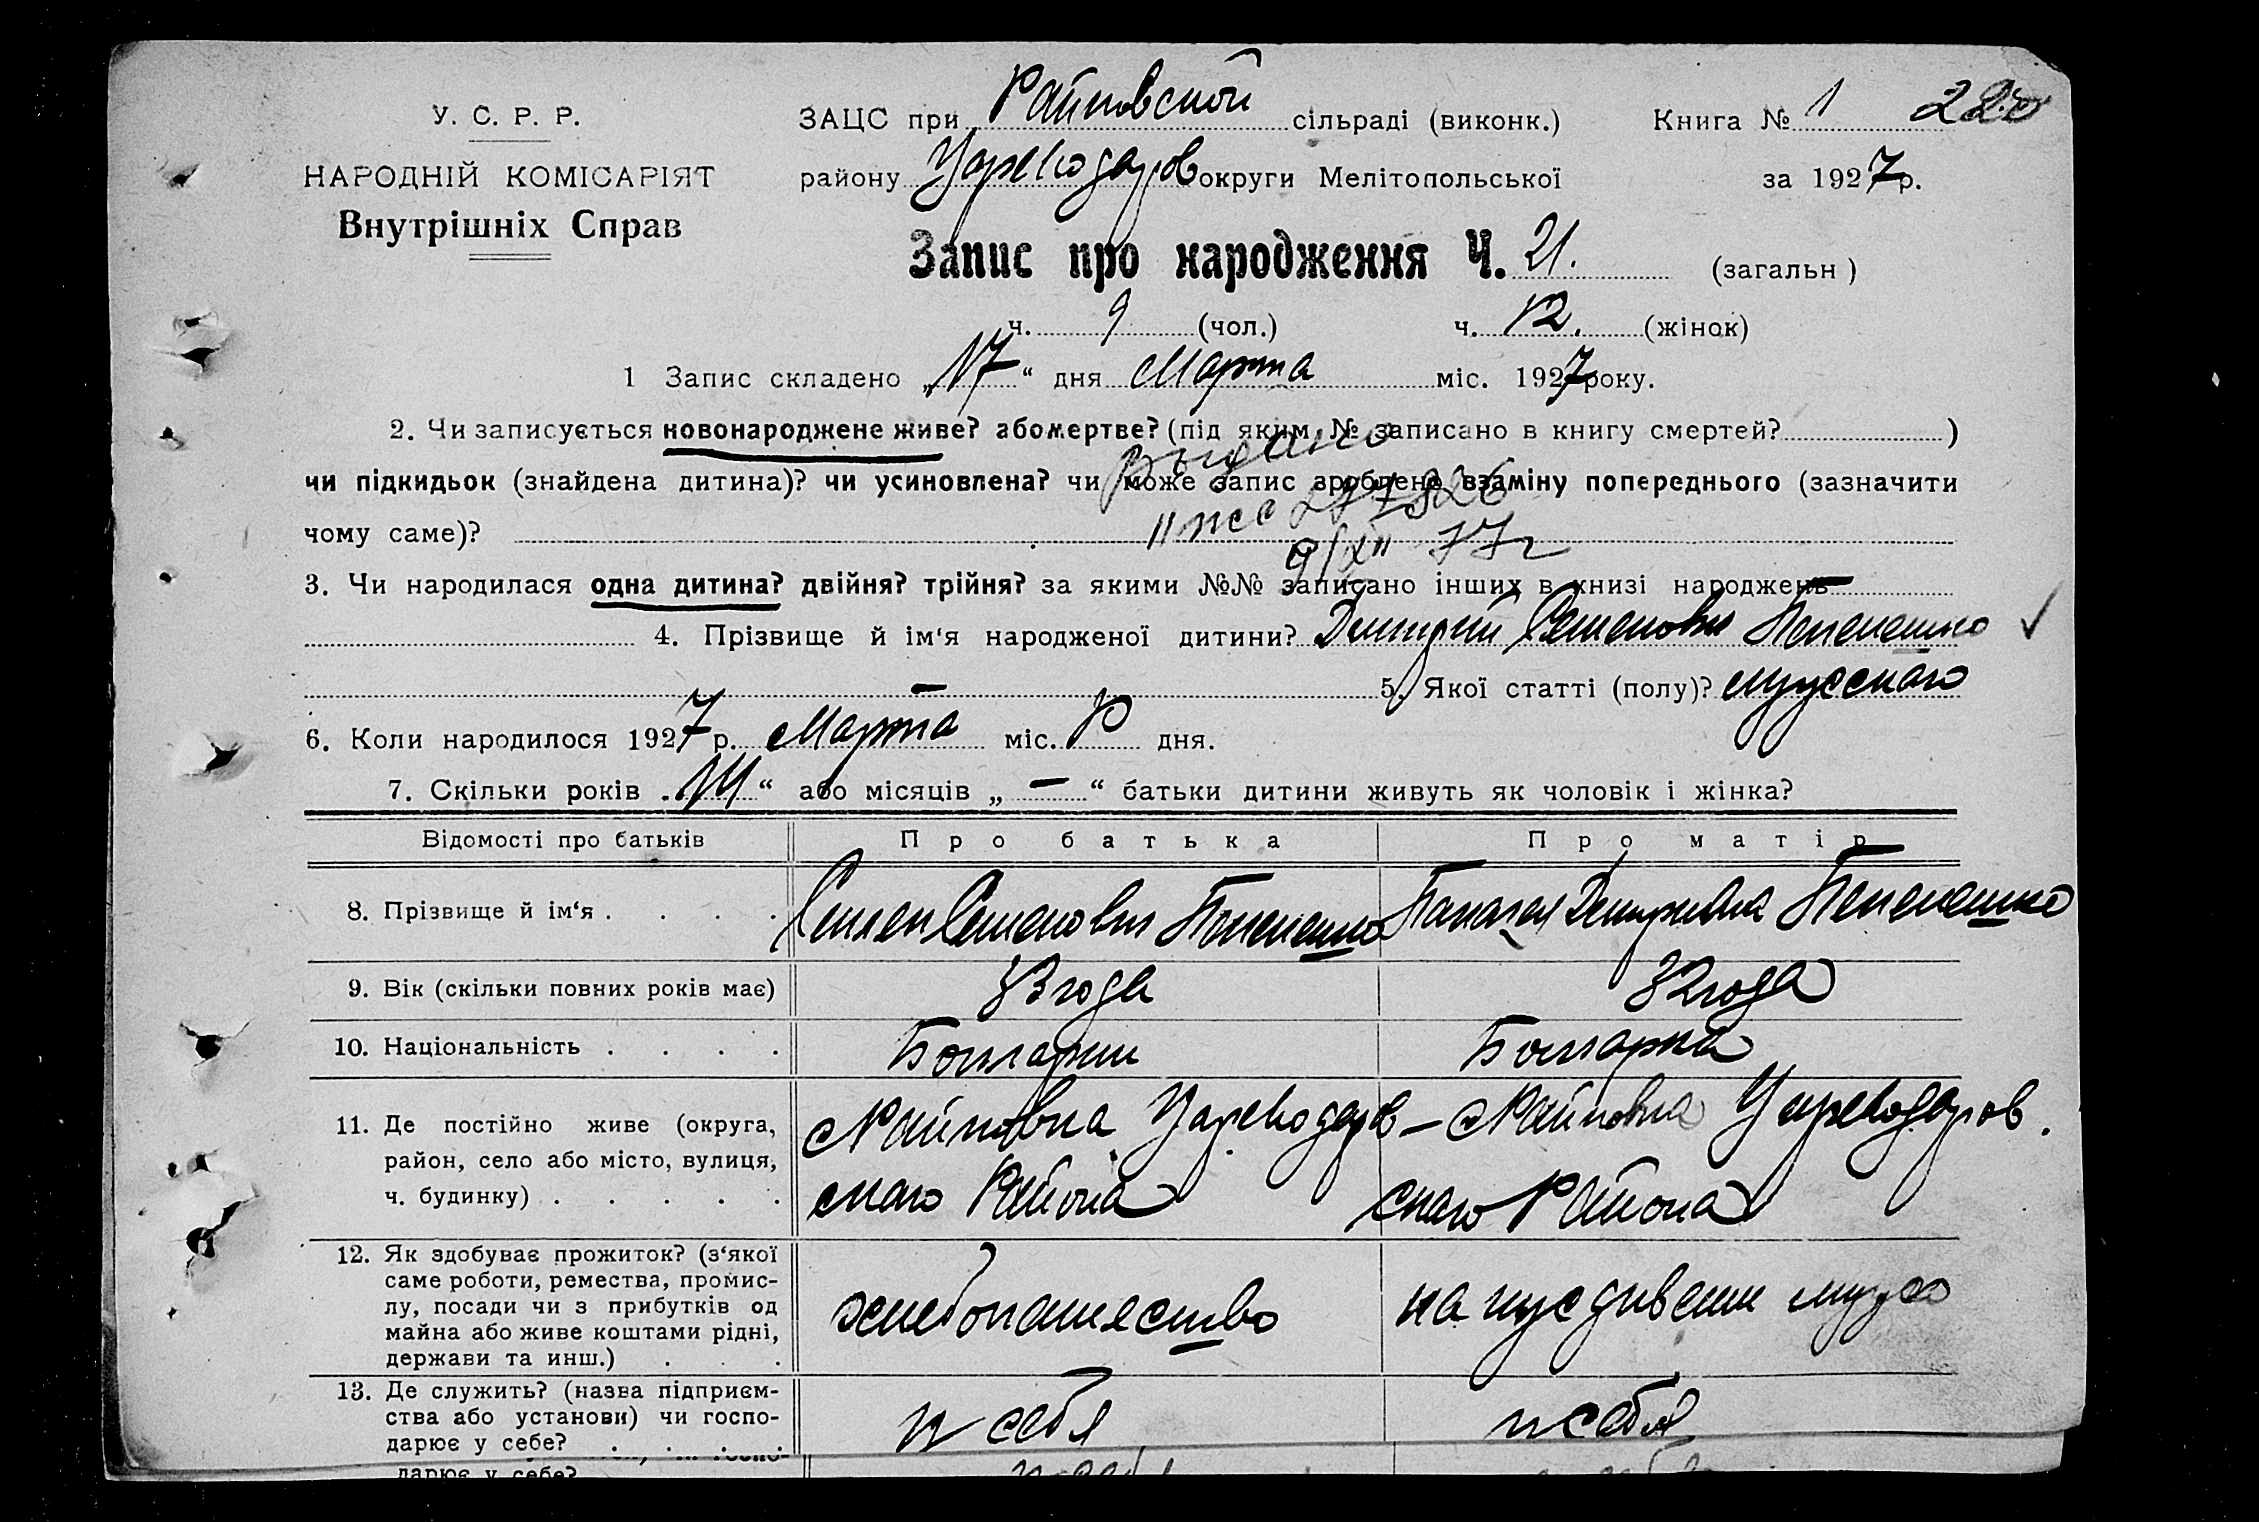 У. С. Р. Р.
НАРОДНІЙ КОМІСАРІЯТ
Внутрішніх Справ
ЗАЦС при Райновской сільраді (виконк.) Книга № 1 220
району Цареводаров округи Мелітопольської за 1927 р.
Запис про народження Ч. 21. (загальн)
ч. 9 (чол.) ч. 12. (жінок)
1 Запис складено „17“ дня Марта міс. 1927 року.
2. Чи записується новонароджене живе? або мертве? (під яким № записано в книгу смертей? )
Выдано
чи підкидьок (знайдена дитина)? чи усиновлена? чи може запис зроблено взаміну попереднього (зазначити
чому саме)?
3. Чи народилася одна дитина? двійня? трійня? за якими №№ записано інших в книзі народжень —
4. Прізвище й ім‘я народженої дитини? Димитрий Семенович
— 5. Якої статті (полу)? мужскаго
6. Коли народилося 1927 р. Марта міс. дня.
7. Скільки років „14“ або місяців „—“ батьки дитини живуть як чоловік і жінка?
Відомості про батьків Про батька Про матір
8. Прізвище й ім‘я . . . . Семен Семенович Димитриевна
9. Вік (скільки повних років має) 33 года 32 года
10. Національність . . . . Болгарин Болгарка
11. Де постійно живе (округа, район, село або місто, вулиця, ч. будинку) . . . . .
с Райновка Цареводаров–
скаго Района
с Райновка Цареводаров.
скаго Района
12. Як здобуває прожиток? (з‘якої
саме роботи, ремества, промис-
лу, посади чи з прибутків од
майна або живе коштами рідні,
держави та инш.) . . .
хлебопашество
на иждивении мужа
13. Де служить? (назва підприєм-
ства або установи) чи госпо-
дарює у себе? . . . .
у себя
у себя
дарює у себе?